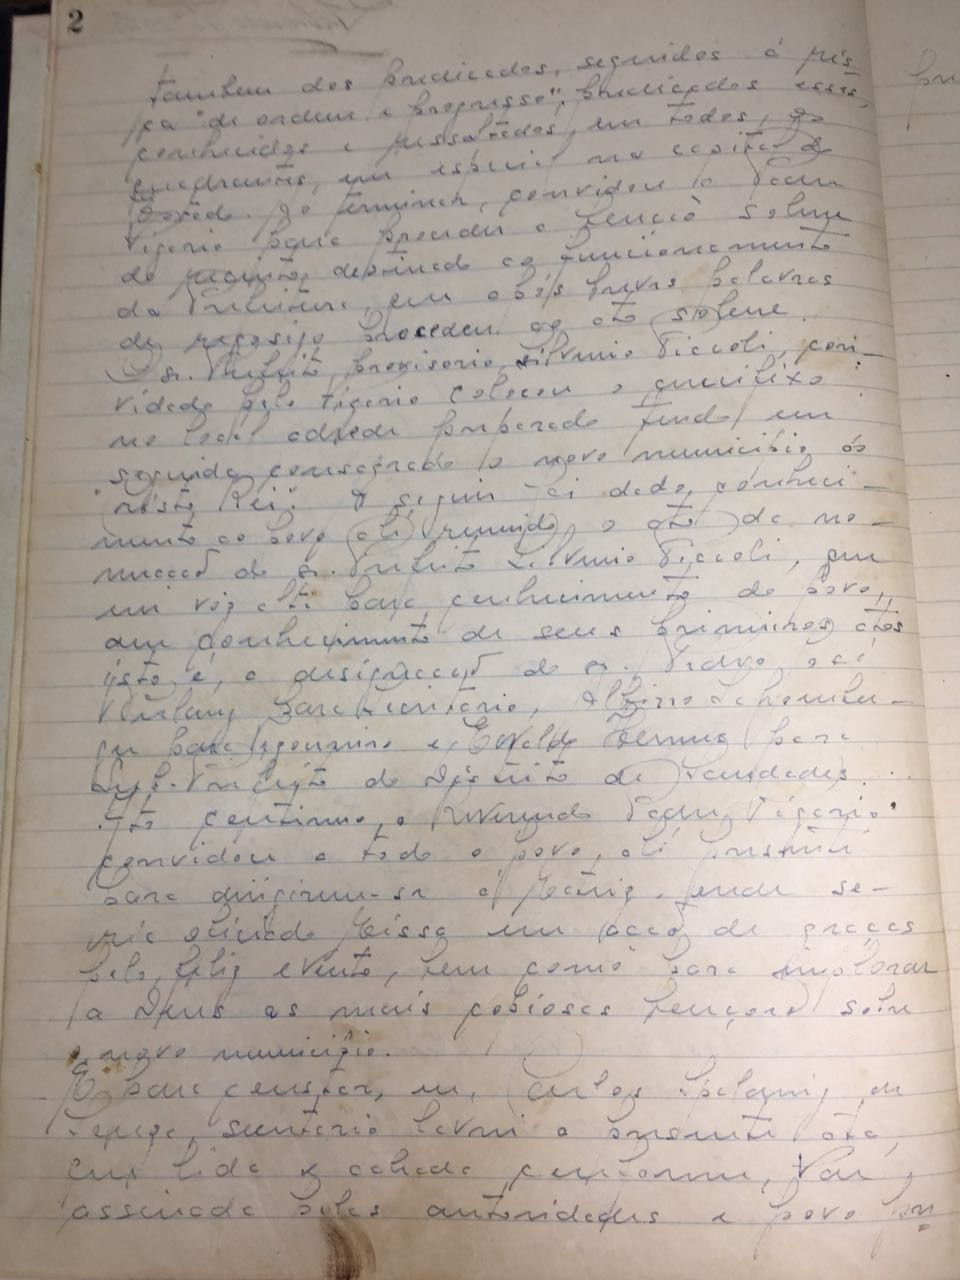 2
tambem dos predicados, seguidos á ris
ca "de ordem e progresso", predicados esses,
conhecidos e ressaltados, em todos, os
quadrantes, em especial na capital do
Estado. Ao terminar, convidou o Padre
Vigario para proceder a benção solene
do recinto destinado ao funcionamento
da Prefeitura, que após breves palavras
de regosijo procedeu ao ato solene.
O sr. Prefeito provisorio, Silvanio Piccoli, con-
vidado pelo Vigario colocou o crucifixo
no local adrede preparado tendo em
seguida consagrado o novo municipio ao
"Cristo Rei". A seguir foi dado, conheci-
mento ao povo ali reunido, o ato de no-
meacão do sr. Prefeito Piccoli, que
em voz alta para conhecimento do povo,
deu conhecimento de seus primeiros atos
isto é, a designacão do sr.
para Secretario, Albino
para e para
Sub-Prefeito do Distrito de
Ato continuo, o Reverendo Padre Vigario
convidou a todo o povo, ali presente
para dirigirem-se á Matriz, onde se-
ria oficiada Missa em acão de graças
pelo feliz evento, bem como para implorar
a Deus as mais copiosas bençãos sobre
o novo municipio.
E para constar, eu, Carlos
secretario lavrei a presente ata,
que lida e achada conforme, vai
assinada pelas autoridades e povo pre